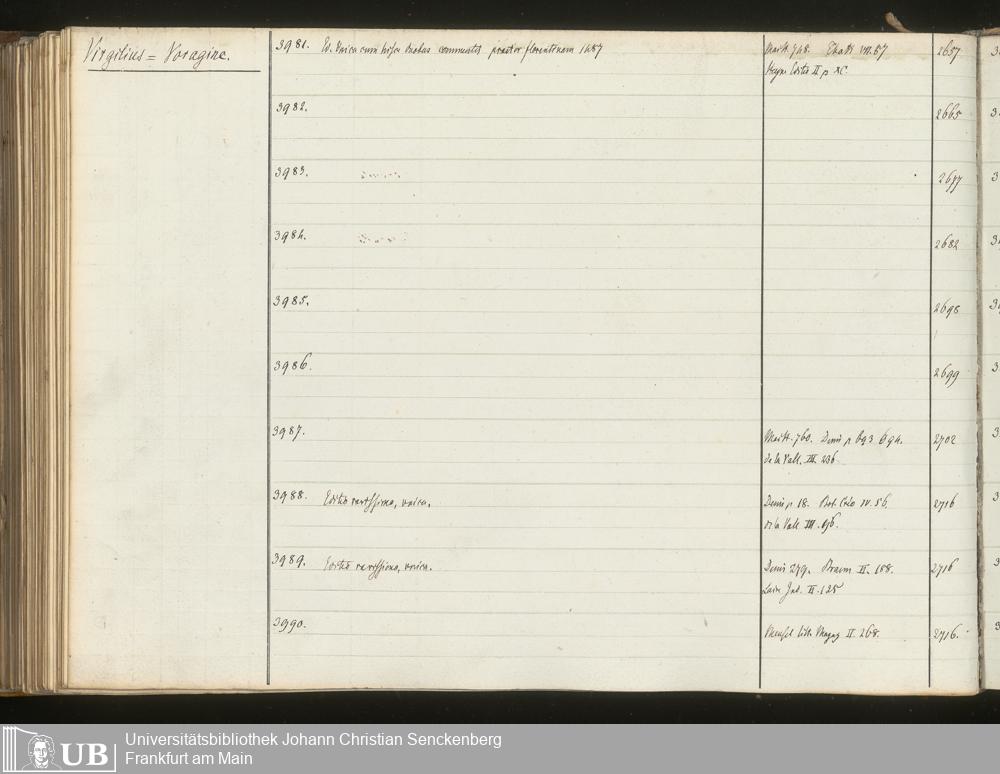 Virgilius = Voragine.
3981. Ed. unica cum hisce commentis praeter florentinam 1487
Maitt. 748. VII. 87
Heyne II p XC.
2657
3982.
2665
3983.
2677
3984.
2682
3985.
2698
3986.
2699
3987.
Maitt. 760. Denis p 693 694.
de la Vall. III. 236
2702
3988. Editio rarissima, unica.
Denis p. 18. IV. 56.
de la Vall III. 696.
2716
3989. Editio rarissima, unica.
Denis 279. Braun II. 188.
Laire Ind. II. 125
2716
3990.
Meusel litt. Magaz II. 268.
2716.
UB
Universitätsbibliothek Johann Christian Senckenberg
Frankfurt am Main